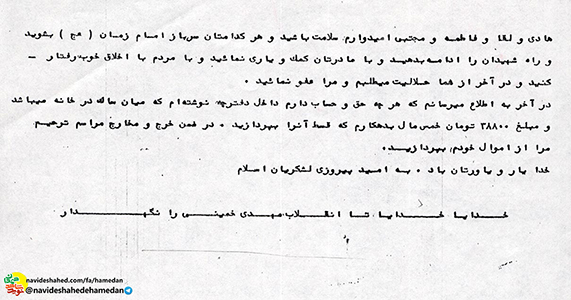 هادی و لالا و فاطمه و مجتبی امیدوارم سلامت باشید و هر کدامتان سرباز امام زمان ( عج ) بشوید
و راه شهیدان را ادامه بدهید و با مادرتان کمک و یاری نمائید و با مردم با اخلاق خوب رفتار -
کنید و در آخر از شما حلالیت میطلبم و مرا عفو نمائید .
در آخر به اطلاع میرسانم که هر چه حق و حساب دارم داخل دفترچه نوشته‌ام که میان ساک در خانه میباشد
و مبلغ ۳۸۸۰۰ تومان خمس مال بدهکارم که قسط آنرا بپردازید . در ضمن خرج و مخارج مراسم ترحیم
مرا از اموال خودم بپردازید.
خدا یار و یاورتان باد . به امید پیروزی لشکریان اسلام
خدایا خدایا تا انقلاب مهدی خمینی را نگهدار
navideshahed.com/fa/hamedan
@navideshahedehamedan